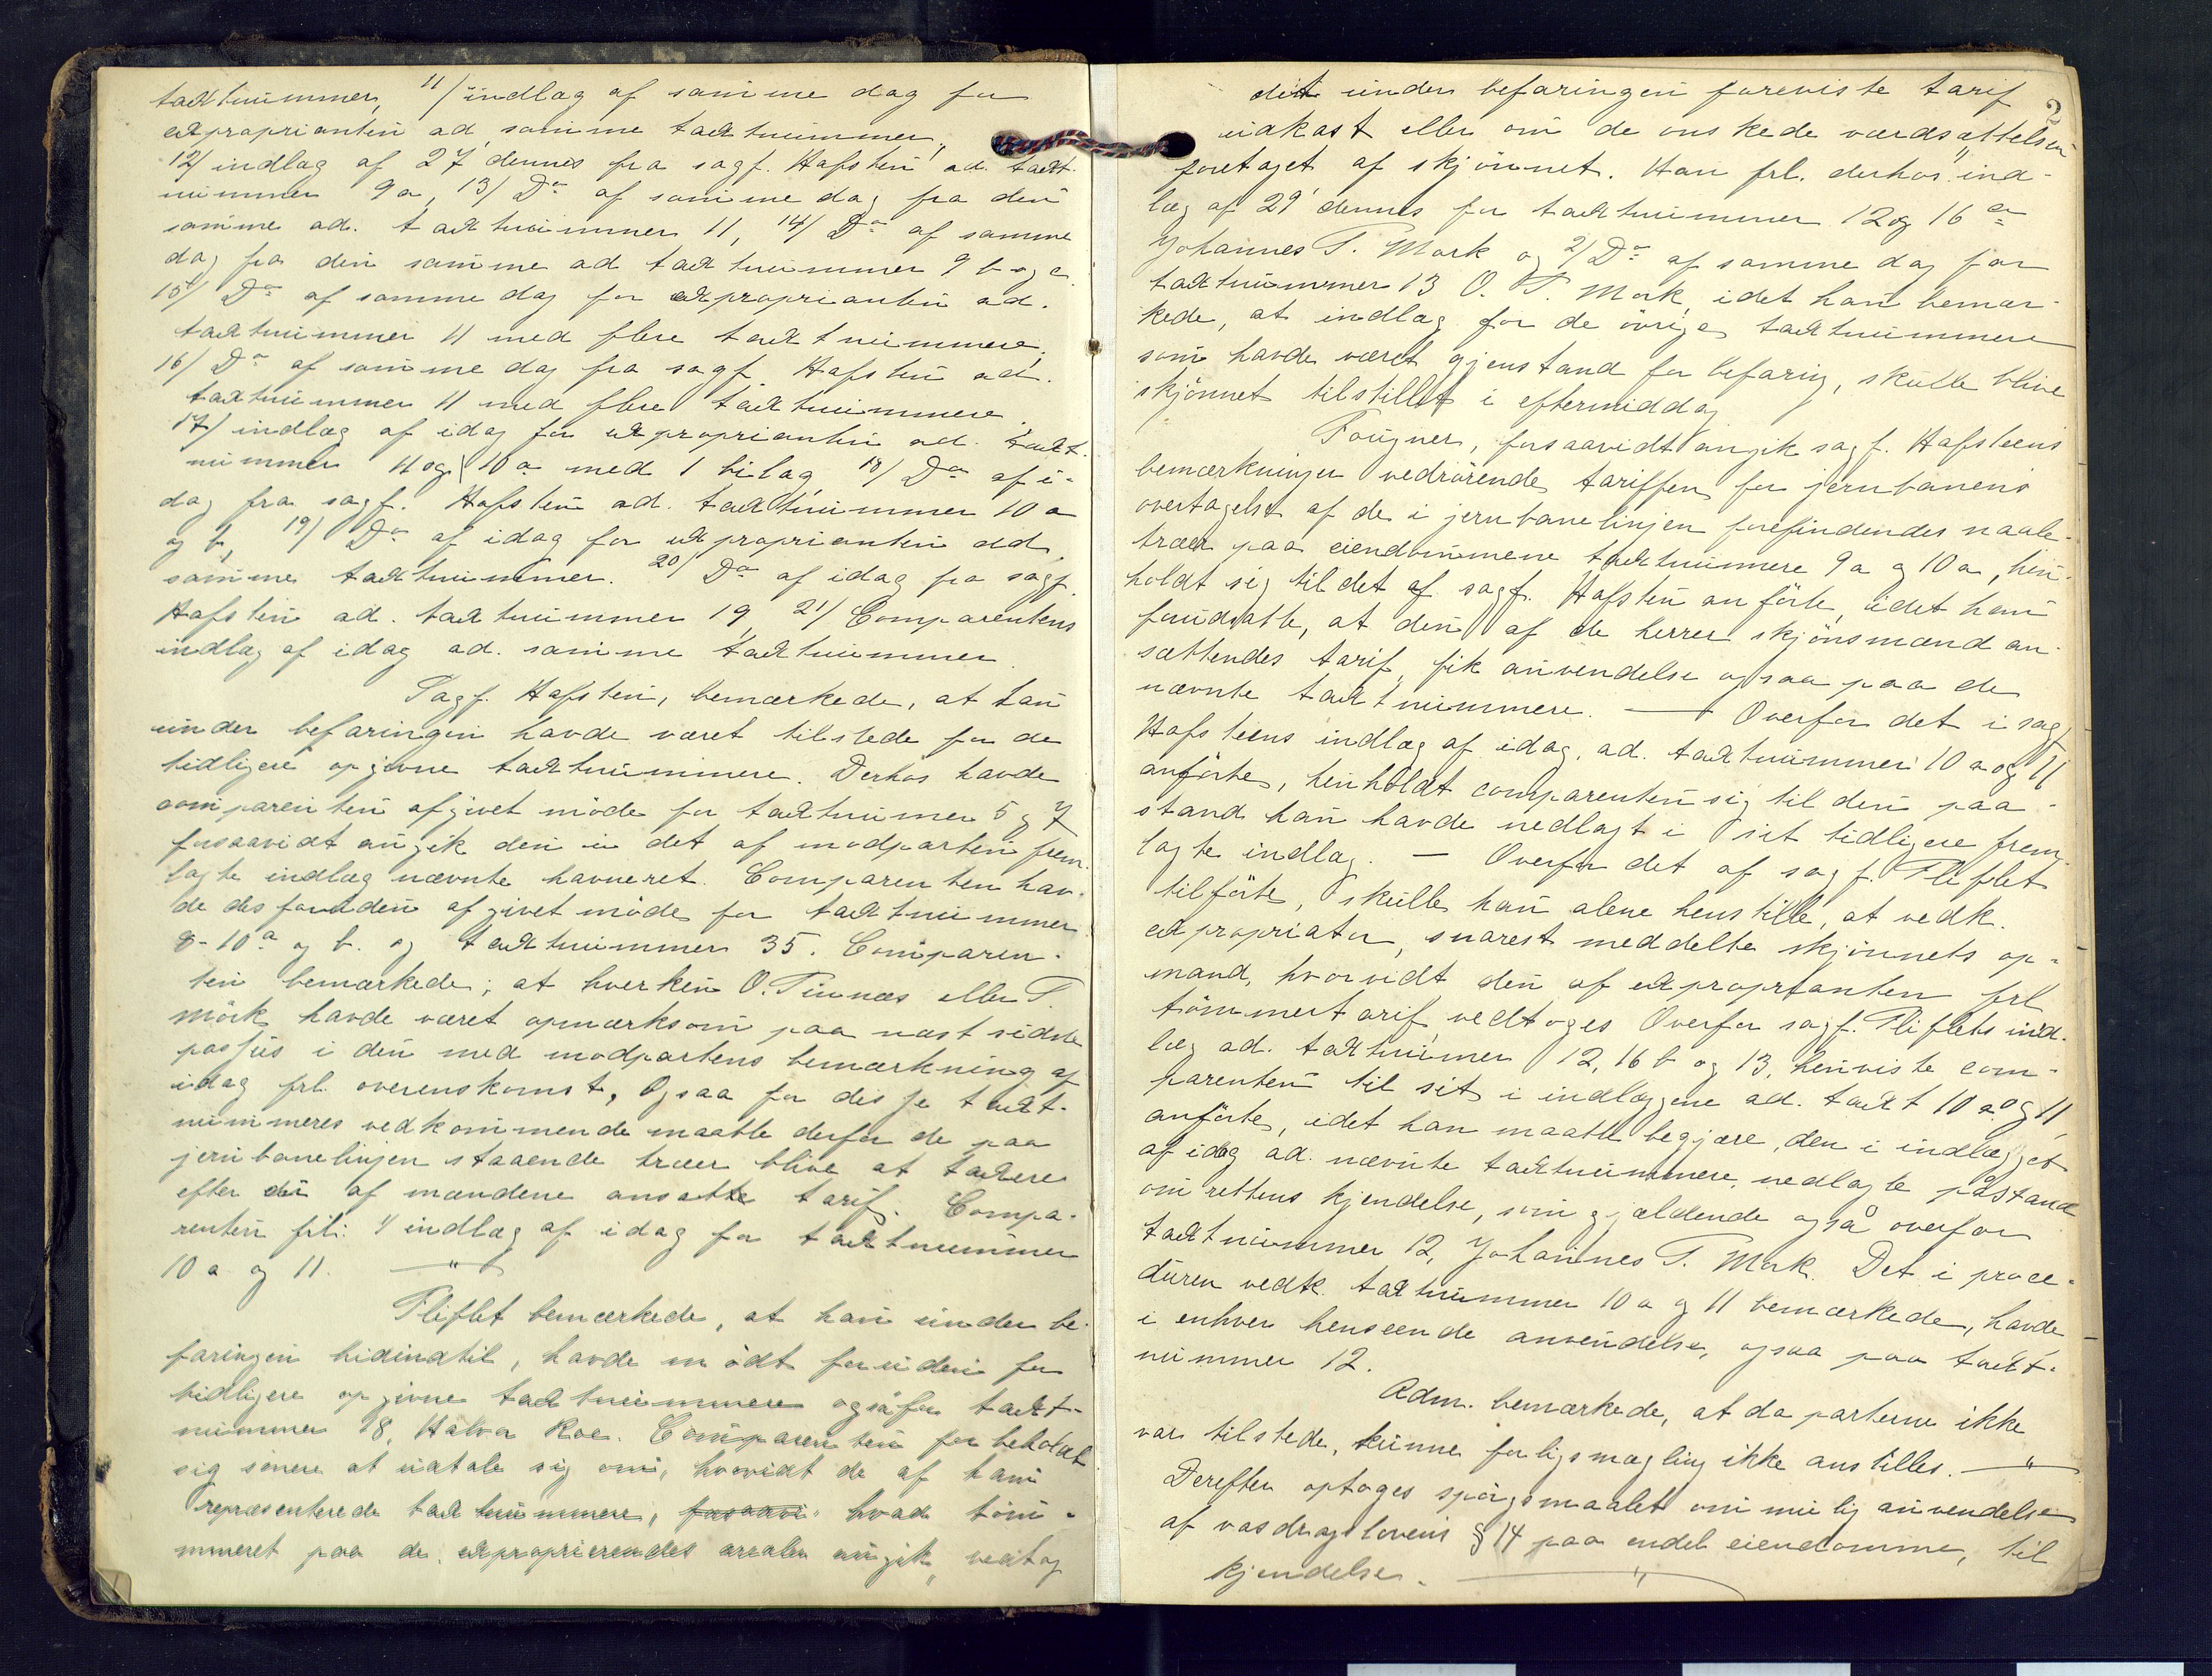 taxtnummer, 11/ indlæg af samme dag for
expropriantën ad samme taxtnummer,
12/ indlæg af 27' dennes fra sagf. Hafstën ad. taxt-
nummer 9a, 13/ Do af samme dag fra den
samme ad. taxtnummer 11, 14/ Do af samme
dag fra den samme ad taxtnummer 9 b og c.
15/ Do af samme dag for expropriantën ad.
taxtnummer 11 med flere taxtnummere,
16/ Do af samme dag fra sagf. Hafstën ad.
taxtnummer 11 med flere taxtnummere.
17/ indlæg af idag for expropriantën ad. taxt-
nummer 11 og 10a med 1 bilag, 18/ Do af i-
dag fra sagf. Hafstën ad. taxtnummer 10 a
og b, 19/ Do af idag for expropriantën ad.
samme taxtnummer. 20/ Do af idag fra sagf.
Hafstën ad. taxtnummer 19, 21/ Comparentens
indlæg af idag ad. samme taxtnummer.
Sagf. Hafstën, bemærkede, at han
under befaringen havde været tilstede for de
tidligere opgivne taxtnummere. Derhos havde
comparenten afgivet möde for taxtnumer 5 og 7
forsaavidt angik den i det af modparten frem-
lagte indlæg nævnte havneret. Comparenten hav-
de desforuden afgivet möde for taxtnummer
8-10a og b. og taxtnummer 35. Comparen-
ten bemærkede; at hverken O. Tinnæs eller T.
Mörk havde været opmærksom paa næst sidste
passus i den med modpartens bemærkning af
idag frl. overenskomst, Ogsaa for disse taxt-
nummeres vedkommende maatte derfor de paa
jernbanelinjen staaende træer blive at taxere
efter den af mændene ansatte tarif. Compa-
renten frl: 1/ indlæg af idag for taxtnummer
10 a og 11. — " —
Fliflet bemærkede, at han under be-
faringen hidindtil, havde mödt foruden for
tidligere opgivne taxtnummere også for taxt-
nummer 18, Halvor Roe. Comparenten forbeholdt
sig senere at udtale sig om, hvorvidt de af ham
repræsenterede taxtnummere, forsaavi hvad töm-
mmeret paa de exproprierendes arealer angik, vedtog
det under befaringen foreviste tarif 2
udkast eller om de önskede værdsættelsen
foretaget af skjönnet. Han frl. derhos ind-
læg af 29' dennes for taxtnummer 12 og 16 a
Johannes T. Mörk og 2/ Do af samme dag for
taxtnummer 13 O. T. Mörk, idet han bemær-
kede, at indlæg for de övrige taxtnummere
som havde været gjenstand for befaring, skulle blive
skjönnet tilstillet i eftermiddag
Fougner, forsaavidt angik sagf. Hafsteens
bemærkninger vedrörende tariffen for jernbanens
overtagelse af de i jernbanelinjen forefindendes naale-
træer paa eiendommene taxtnummere 9a og 10a, hen-
holdt sig til det af sagf. Hafstën anförte, idet han
forudsatte, at den af de herrer skjönsmænd an-
sættendes tarif, fik anvendelse ogsaa paa de
nævnte taxtnummere. — Overfor det i sagf
Hafsteens indlæg af idag, ad. taxtnummer 10 a og 11
anförte, henholdt comparenten sig til den paa-
stand han havde nedlagt i sit tidligere frem-
lagte indlæg. — Overfor det af sagf. Fliflet
tilförte, skulle han alene henstille, at vedk.
expropriater, snarest meddelte skjönnets op-
mand, hvorvidt den af exproprianten frl
tömmertarif vedtoges Overfor sagf. Fliflets ind-
læg ad. taxtnumer 12, 16 b og 13, henviste com-
parenten til sit i indlæggene ad. taxt 10 a og 11
anförte, idet han maatte begjære, den i indlægget
af idag ad. nævnte taxtnummere, nedlagte påstand
om rettens kjendelse, som gjældende også overfor
taxtnummer 12, Johannes T. Mörk. Det i proce-
düren vedk. taxtnummer 10 a og 11 bemærkede, havde
i enhver henseende anvendelse, ogsaa paa taxt-
nummer 12.
Adm. bemærkede, at da parterne ikke
var tilstede, kunne forligsmægling ikke anstilles. — " —
Derefter optoges spörgsmaalet om mulig anvendelse
af vasdragslovens § 14 paa endel eiendomme, til
kjendelse. — " —